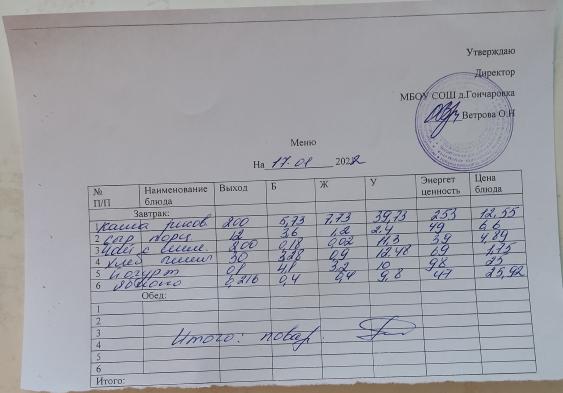 Утверждаю
Директор
МБОУ СОШ д.Гончаровка
Ветрова О.Н
Меню
На 17.01 2022
№ П/П Наименование блюда Выход Б Ж У Энергет ценность Цена блюда
Завтрак:
каша рисов 200 5,73 7,73 39,73 253 12,55
2 сыр порц 12 3,6 1,2 2,4 49 6,6
3 чай с 200 0,18 0,02 11,3 39 4,89
4 хлеб пшен 30 3,28 0,9 12,48 69 1,75
5 йогурт 0,8 4,8 3,2 10 98 25
6 яблоко 0,216 0,4 0,4 9,8 47 25,92
Обед:
1
2
3 Итого: повар.
4
5
6
Итого: